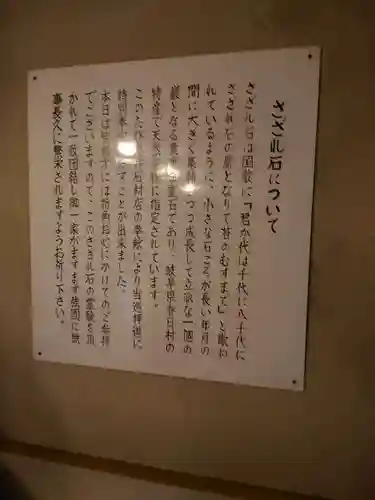 さざれ石について
さざれ石は国歌に「君が代は千代に八千代に
さざれ石の巌となりて苔のむすまで」と歌わ
れているように、小さな石ころが長い年月の
間に大きく集結しつつ成長して立派な一個の
巌となる貴重な霊石であり、岐阜県春日村の
特産で天然記念物に指定されています。
このたび 石材店の奉納により当巡拝道に
特別奉 すことが出来ました。
本日は 折角お心にかけてのご参拝
でございますので、このさざれ石の霊験を頂
かれて一致団結し御一家がますます強固に無
事長久に繁栄されますようお祈り下さい。